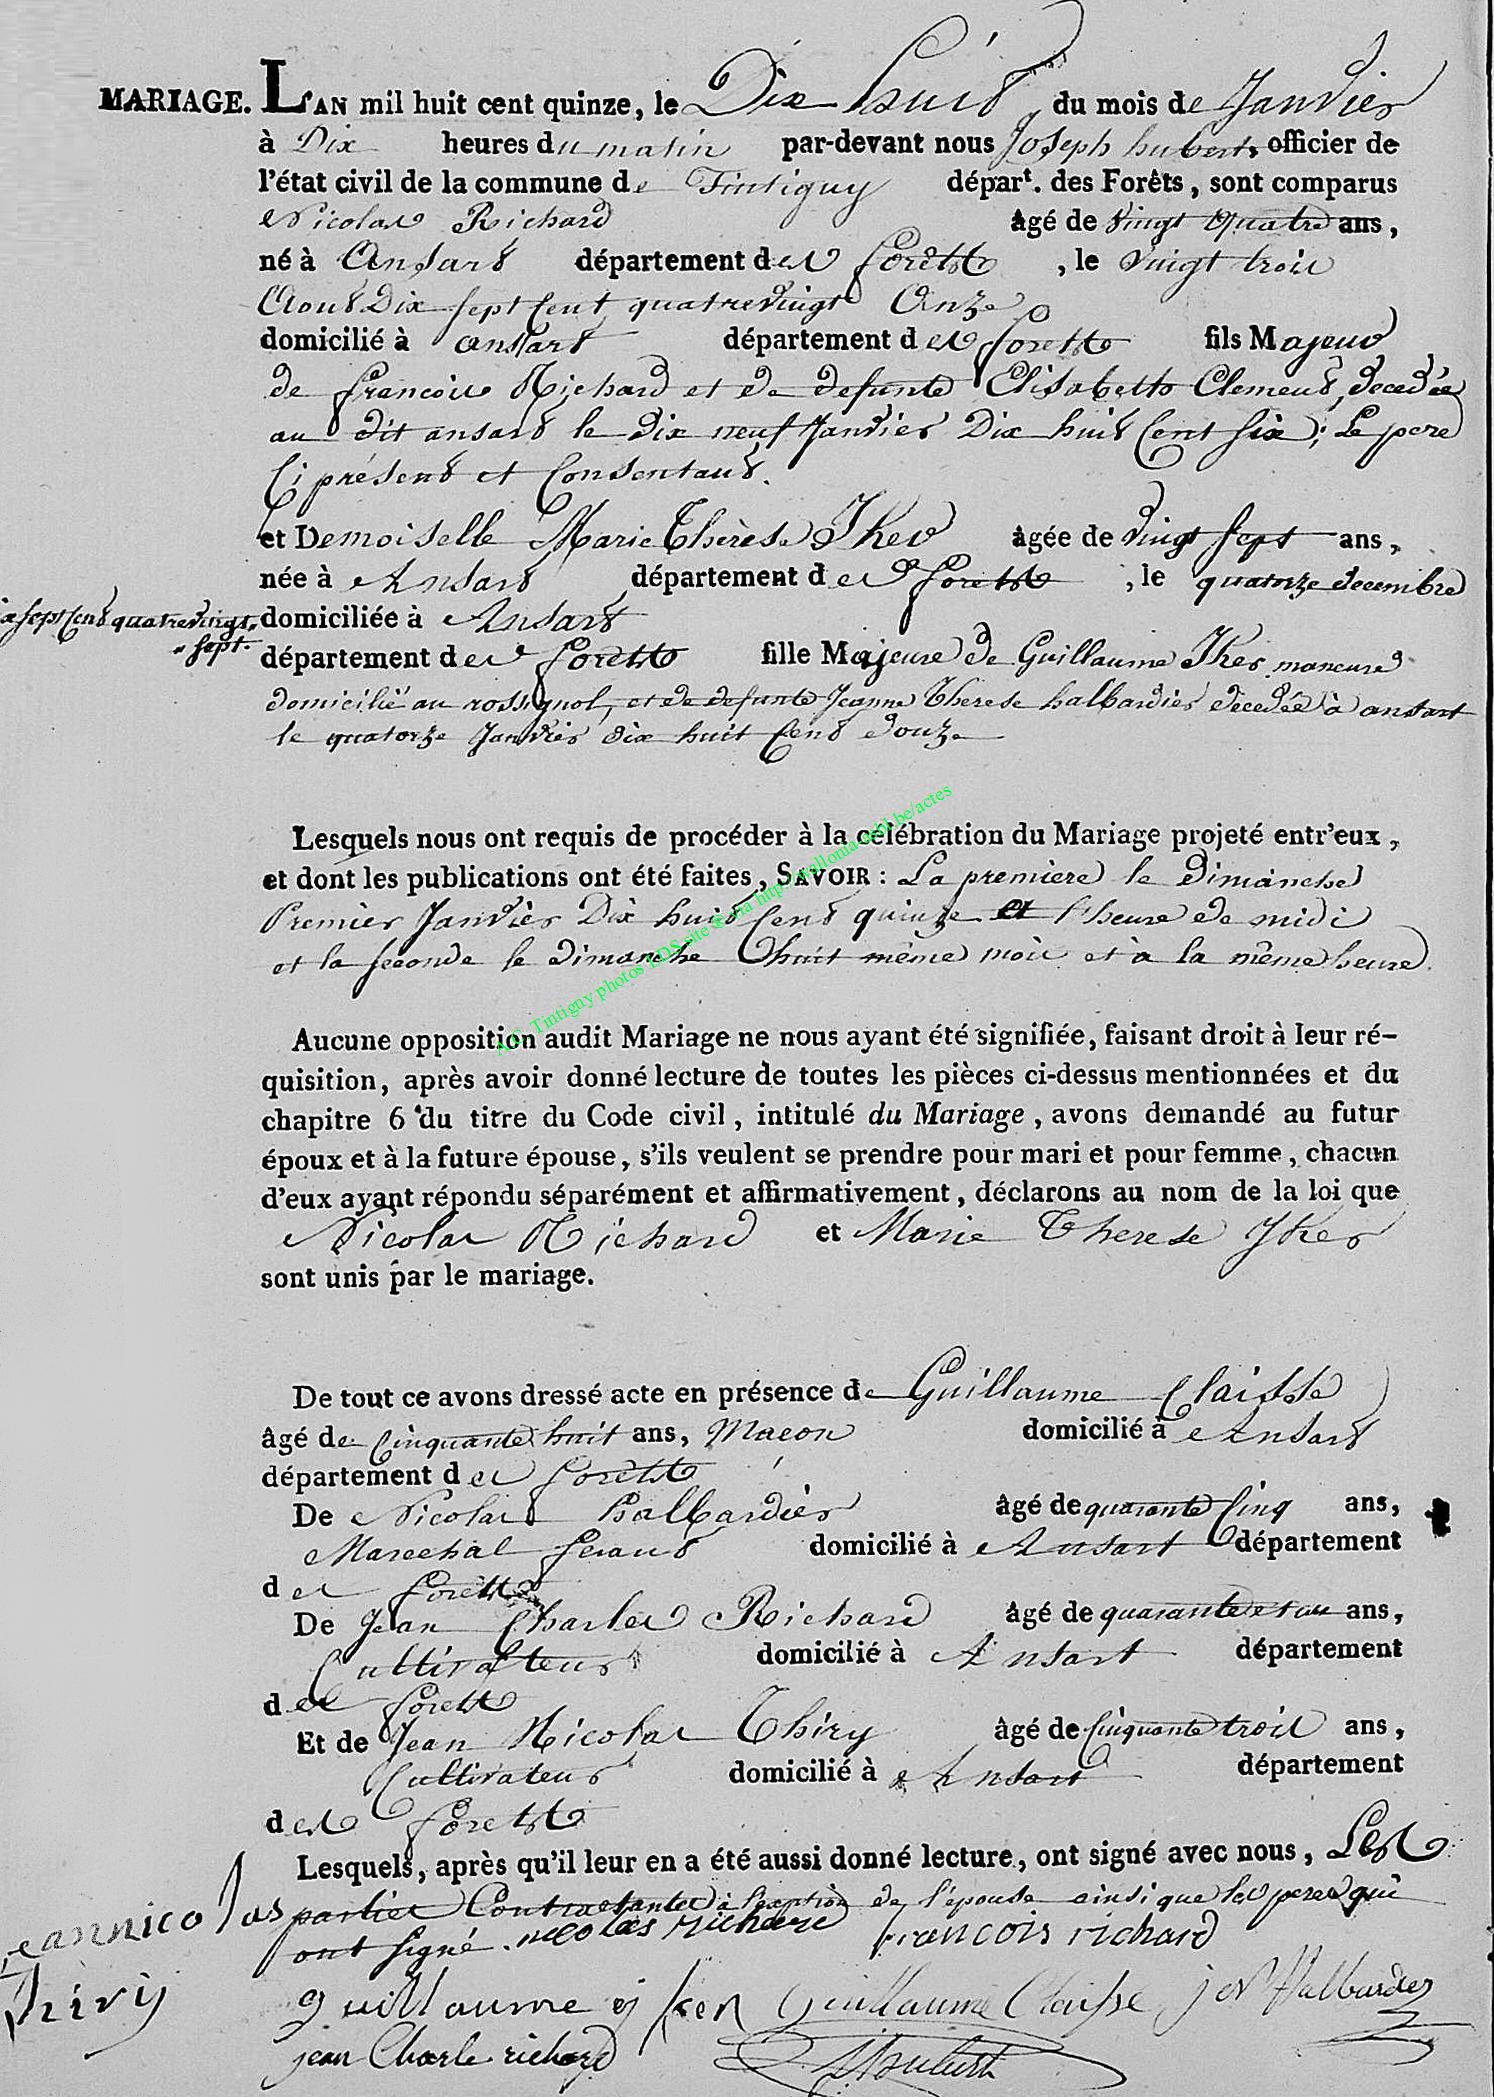 MARIAGE. L'AN mil huit cent quinze, le Dix huit du mois de Janvier
à Dix heures du matin par-devant nous Joseph hubert, officier de
l'état civil de la commune de Tintigny départ. des Forêts, sont comparus
Nicolas Richard âgé de vingt quatre ans,
né à Ansart département des forêts, le vingt trois
Aout Dix sept Cent quatrevingt Onze
domicilié à ansart département des forets fils Majeur
de francois Richard et de defunte Elisabette Clement, decedée
au dit ansart le dix neuf Janvier Dix huit Cent six; Le pere
Ci présent et Consentant.
et Demoiselle Marie Thèrese Iker âgée de vingt sept ans,
née à Ansart département des forets, le quatorze decembre
dix sept Cent quatrevingt
sept.
domiciliée à Ansart
département des forets fille Majeure de Guillaume Iker
domicilié au rossignol, et de defunte Jeanne Therese halbardier decedée à ansart
le quatorze Janvier dix huit Cent douze
Lesquels nous ont requis de procéder à la célébration du Mariage projeté entr'eux,
et dont les publications ont été faites, SAVOIR : La première le Dimanche
Premier Janvier Dix huit Cent quinze et l'heure de midi
et la seconde le dimanche huit même mois et à la même heure.
A.C. Tintigny photos EDS site via http://wallonia-asbl.be/actes
Aucune opposition audit Mariage ne nous ayant été signifiée, faisant droit à leur ré-
quisition, après avoir donné lecture de toutes les pièces ci-dessus mentionnées et du
chapitre 6 du titre du Code civil, intitulé du Mariage, avons demandé au futur
époux et à la future épouse, s'ils veulent se prendre pour mari et pour femme, chacun
d'eux ayant répondu séparément et affirmativement, déclarons au nom de la loi que
Nicolas Richard et Marie Therese Iker
sont unis par le mariage.
De tout ce avons dressé acte en présence de Guillaume Claisse
âgé de Cinquante huit ans, Macon domicilié à Ansart
département des forêts
De Nicolas halbardier âgé de quarante Cinq ans,
Marechal ferant domicilié à Ansart département
des forêts
De Jean Charles Richard âgé de quarante et un ans,
Cultivateur domicilié à Ansart département
des forets
Et de Jean Nicolas Thiry âgé de Cinquante trois ans,
Cultivateur domicilié à Ansart département
des forets
Lesquels, après qu'il leur en a été aussi donné lecture, ont signé avec nous, Les
parties Contractantes à l'exeption de l'épouse ainsi que les peres qui
ont signé. nicolas richard francois richard
jeannicolas
thiry
guillaume ijker Guillaume Claisse halbardier
jean Charle richard JHubert